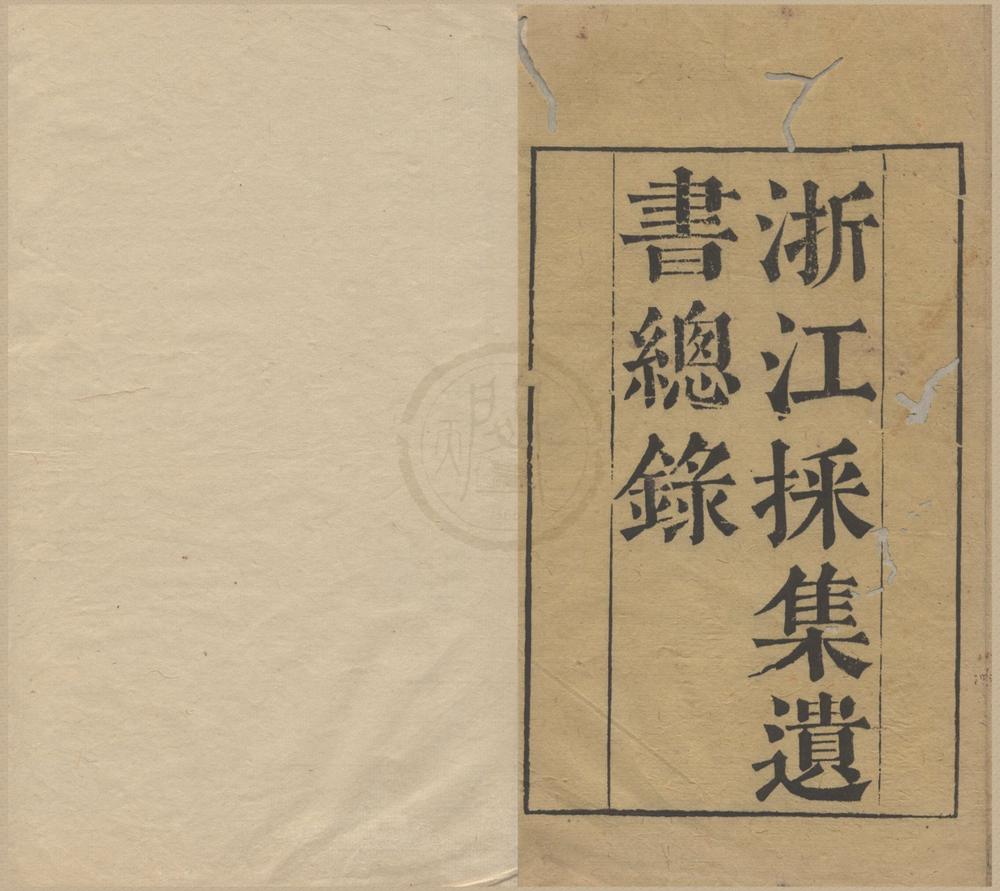 浙江採集遺
書總錄